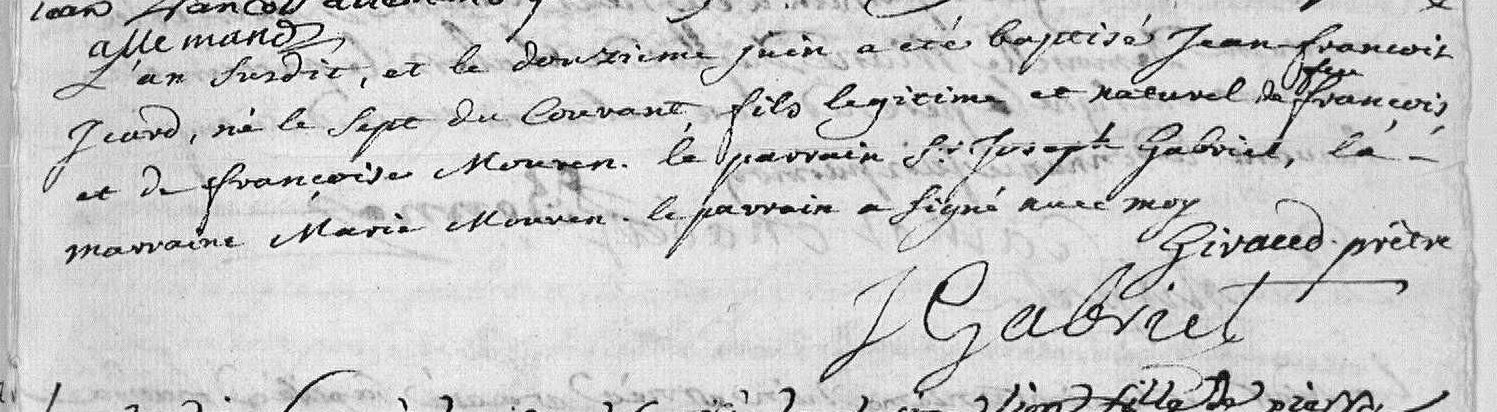 Jean françois allemand
allemand
L'an susdit, et le douzieme juin a été baptisé Jean françois
Icard, né le sept du Courant, fils legitime et naturel de feu françois
et de françoise Mouren. le parrain Sr Joseph Gabriel, la
marraine Marie Mouren. le parrain a signé avec moy
Giraud prêtre
J Gabriel
fille de pierre